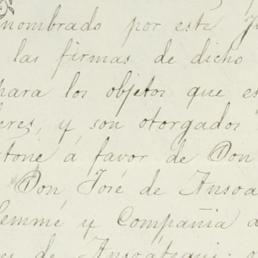 nombrado por este
las firmas de dicho
para los objetos que es
eres, y son otorgados
á favor de Don
Don José de Ansoa
emmé y Compañia
de Ansoátegui